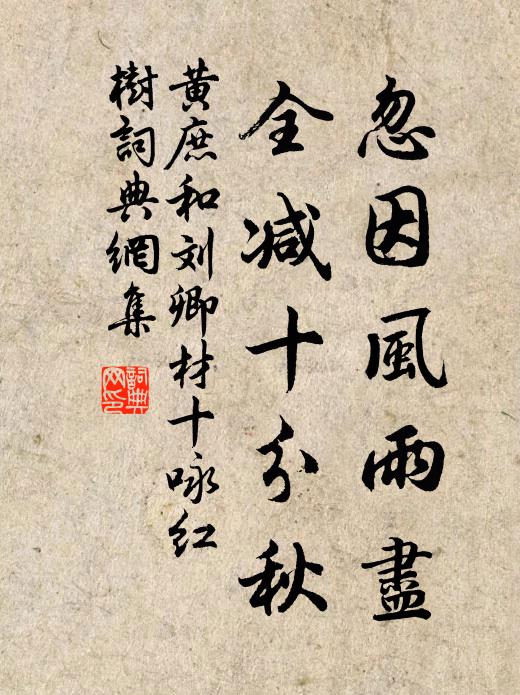 忽因風雨盡
全減十分秋
黄庶和刘卿材十咏红
樹詞典網集
詞典
网印